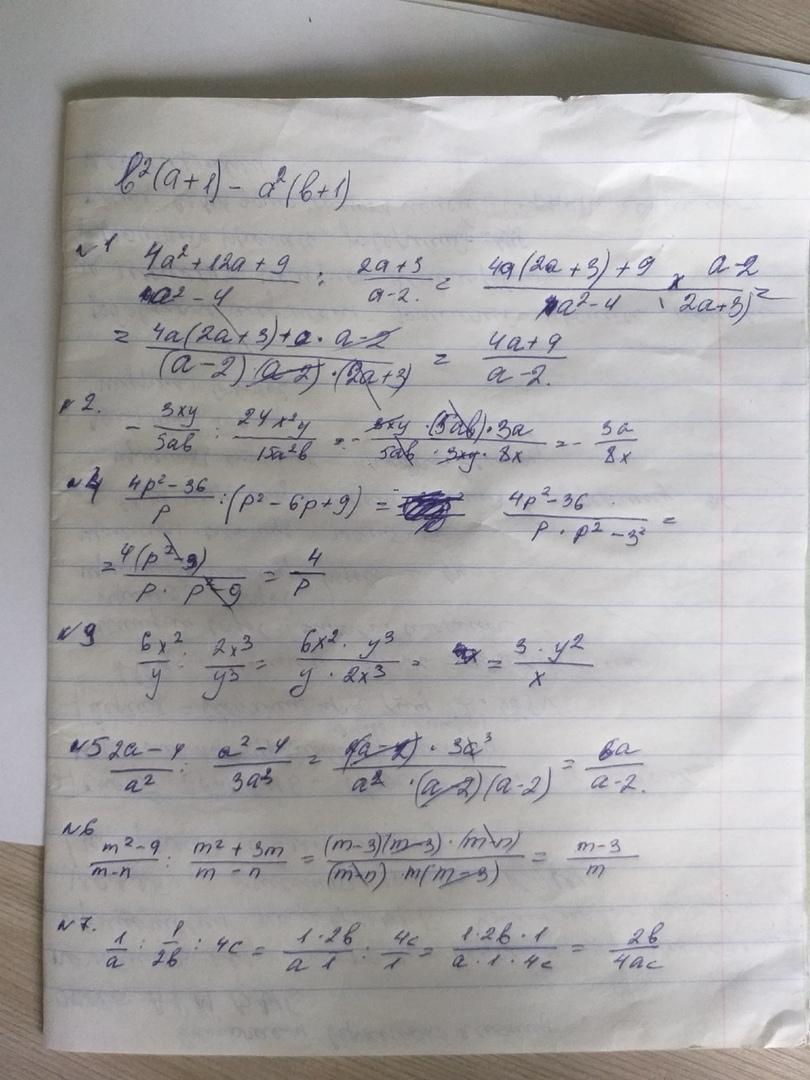 b²(a+1) - a²(b+1)
№1 (4a²+12a+9)/(a²-4) : (2a+3)/(a-2) = (4a(2a+3)+9)/(a²-4) × (a-2)/(2a+3) =
= (4a(2a+3)+a·a-2)/((a-2)(a-2)·(2a+3)) = (4a+9)/(a-2).
№2. - 3xy/5ab : 24x²y/15a²b = - (3xy·(5ab)·3a)/(5ab·3xy·8x) = - 3a/8x
№4 (4p²-36)/p : (p²-6p+9) = (4p²-36)/(p·p²-3²) =
= (4(p²-9))/(p·p²-9) = 4/p
№9 6x²/y : 2x³/y³ = (6x²·y³)/(y·2x³) = = (3·y²)/x
№5 (2a-4)/a² : (a²-4)/3a³ = (2(a-2)·3a³)/(a²·(a-2)(a-2)) = 6a/(a-2).
№6 (m²-9)/(m-n) : (m²+3m)/(m-n) = ((m-3)(m-3)·(m-n))/((m-n) m(m-3)) = (m-3)/m
№7. 1/a : 1/2b : 4c = (1·2b)/(a·1) : 4c/1 = (1·2b·1)/(a·1·4c) = 2b/4ac